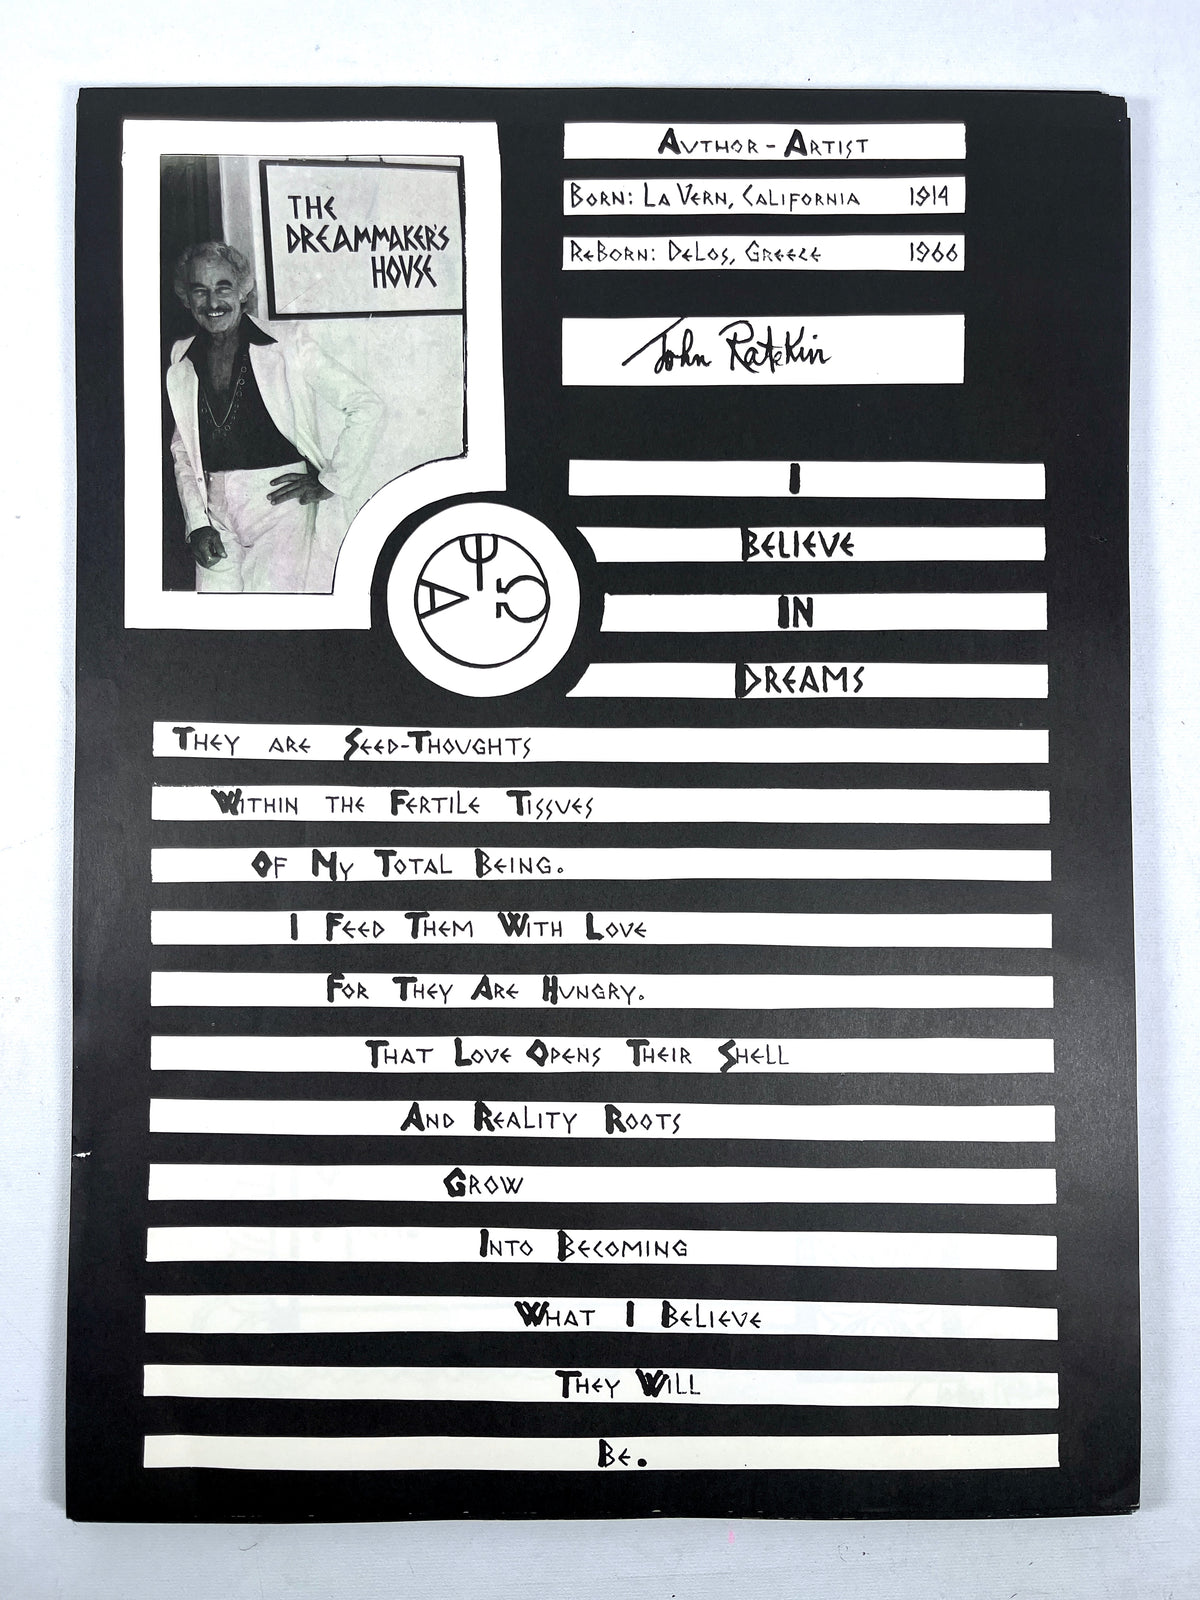 THE
DREAMMAKER'S
HOUSE
AUTHOR - ARTIST
BORN: LA VERN, CALIFORNIA 1914
REBORN: DELOS, GREECE 1966
John Ratekin
Α Ψ Ω
I
BELIEVE
IN
DREAMS
THEY ARE SEED-THOUGHTS
WITHIN THE FERTILE TISSUES
OF MY TOTAL BEING.
I FEED THEM WITH LOVE
FOR THEY ARE HUNGRY.
THAT LOVE OPENS THEIR SHELL
AND REALITY ROOTS
GROW
INTO BECOMING
WHAT I BELIEVE
THEY WILL
BE.